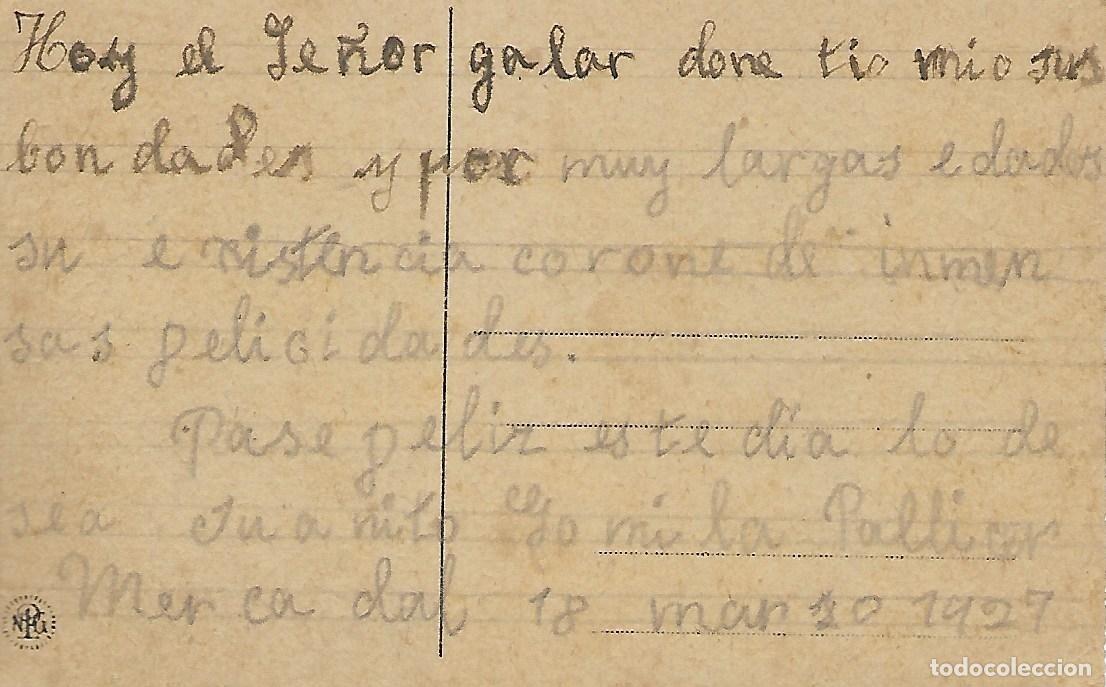 Hoy el Señor galar done tio mio sus
bon dades y por muy largas edades
su existencia corone de inmen
sas felicidades.
Pase feliz este día lo de
sea Juanito Gomila Pallicer
Mercadal 18 marzo 1927
NPG
todocoleccion